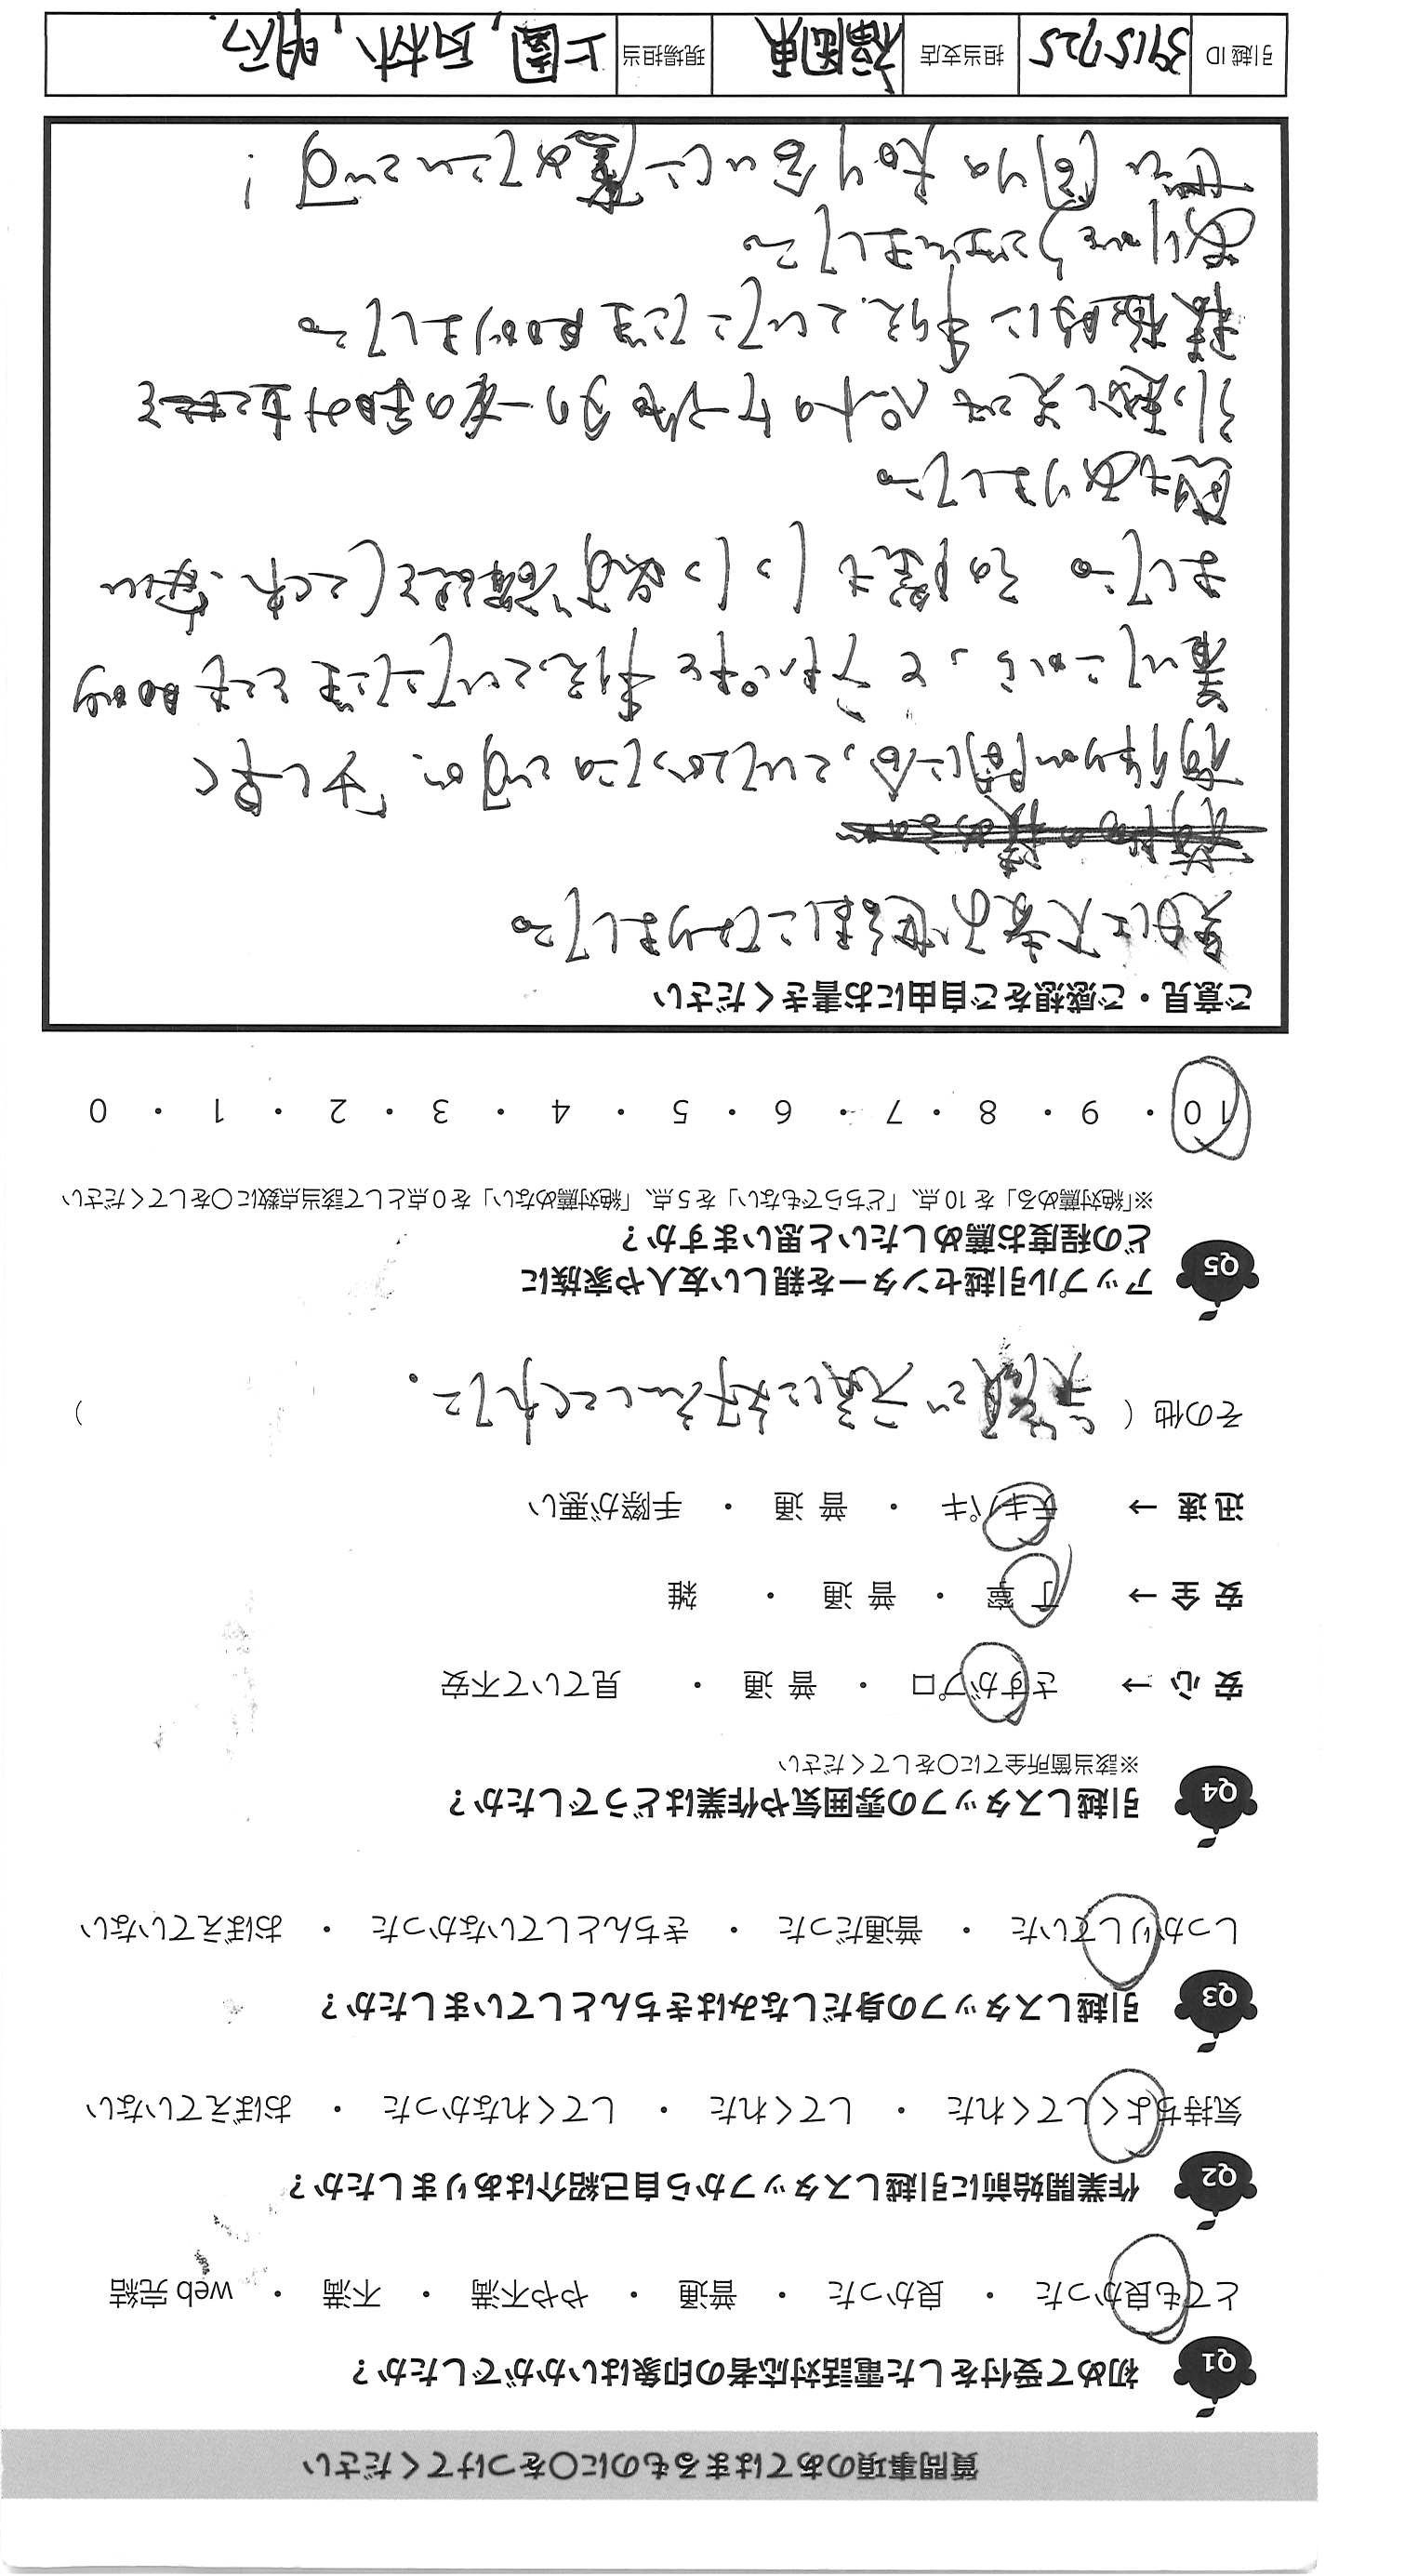 質問事項のあてはまるものに〇をつけてください
Q1 初めて受付をした電話対応者の印象はいかがでしたか？
とても良かった ・ 良かった ・ 普通 ・ やや不満 ・ 不満 ・ web 完結
Q2 作業開始前に引越しスタッフから自己紹介はありましたか？
気持ちよくしてくれた ・ してくれた ・ してくれなかった ・ おぼえていない
Q3 引越しスタッフの身だしなみはきちんとしていましたか？
しっかりしていた ・ 普通だった ・ きちんとしていなかった ・ おぼえていない
Q4 引越しスタッフの雰囲気や作業はどうでしたか？
※該当箇所全てに〇をしてください
安 心 → さすがプロ ・ 普 通 ・ 見ていて不安
安 全 → 丁 寧 ・ 普 通 ・ 雑
迅 速 → テキパキ ・ 普 通 ・ 手際が悪い
その他 ( 笑顔で元気に対応してくれた。 )
Q5 アップル引越センターを親しい友人や家族に
どの程度お薦めしたいと思いますか？
※「絶対薦める」を 10 点、「どちらでもない」を 5 点、「絶対薦めない」を 0 点として該当点数に〇をしてください
10 ・ 9 ・ 8 ・ 7 ・ 6 ・ 5 ・ 4 ・ 3 ・ 2 ・ 1 ・ 0
ご意見・ご感想をご自由にお書きください
先日は大変お世話になりました。
荷作りが間に合っていなかったのですが、「少し早く
着いたから」と、予想外に手伝っていただきとても助かり
ました。その際も１つ１つ必ず確認をしてくれ、安心
感もありました。
引越し先でもペットのケージ他の一番の重みを
移動時に手伝っていただき助かりました。
ありがとうございました。
ぜひ周りの知り合いに薦めたいです！
引越 ID 3915725 担当支店 福岡東 現場担当 上園、西村、明行